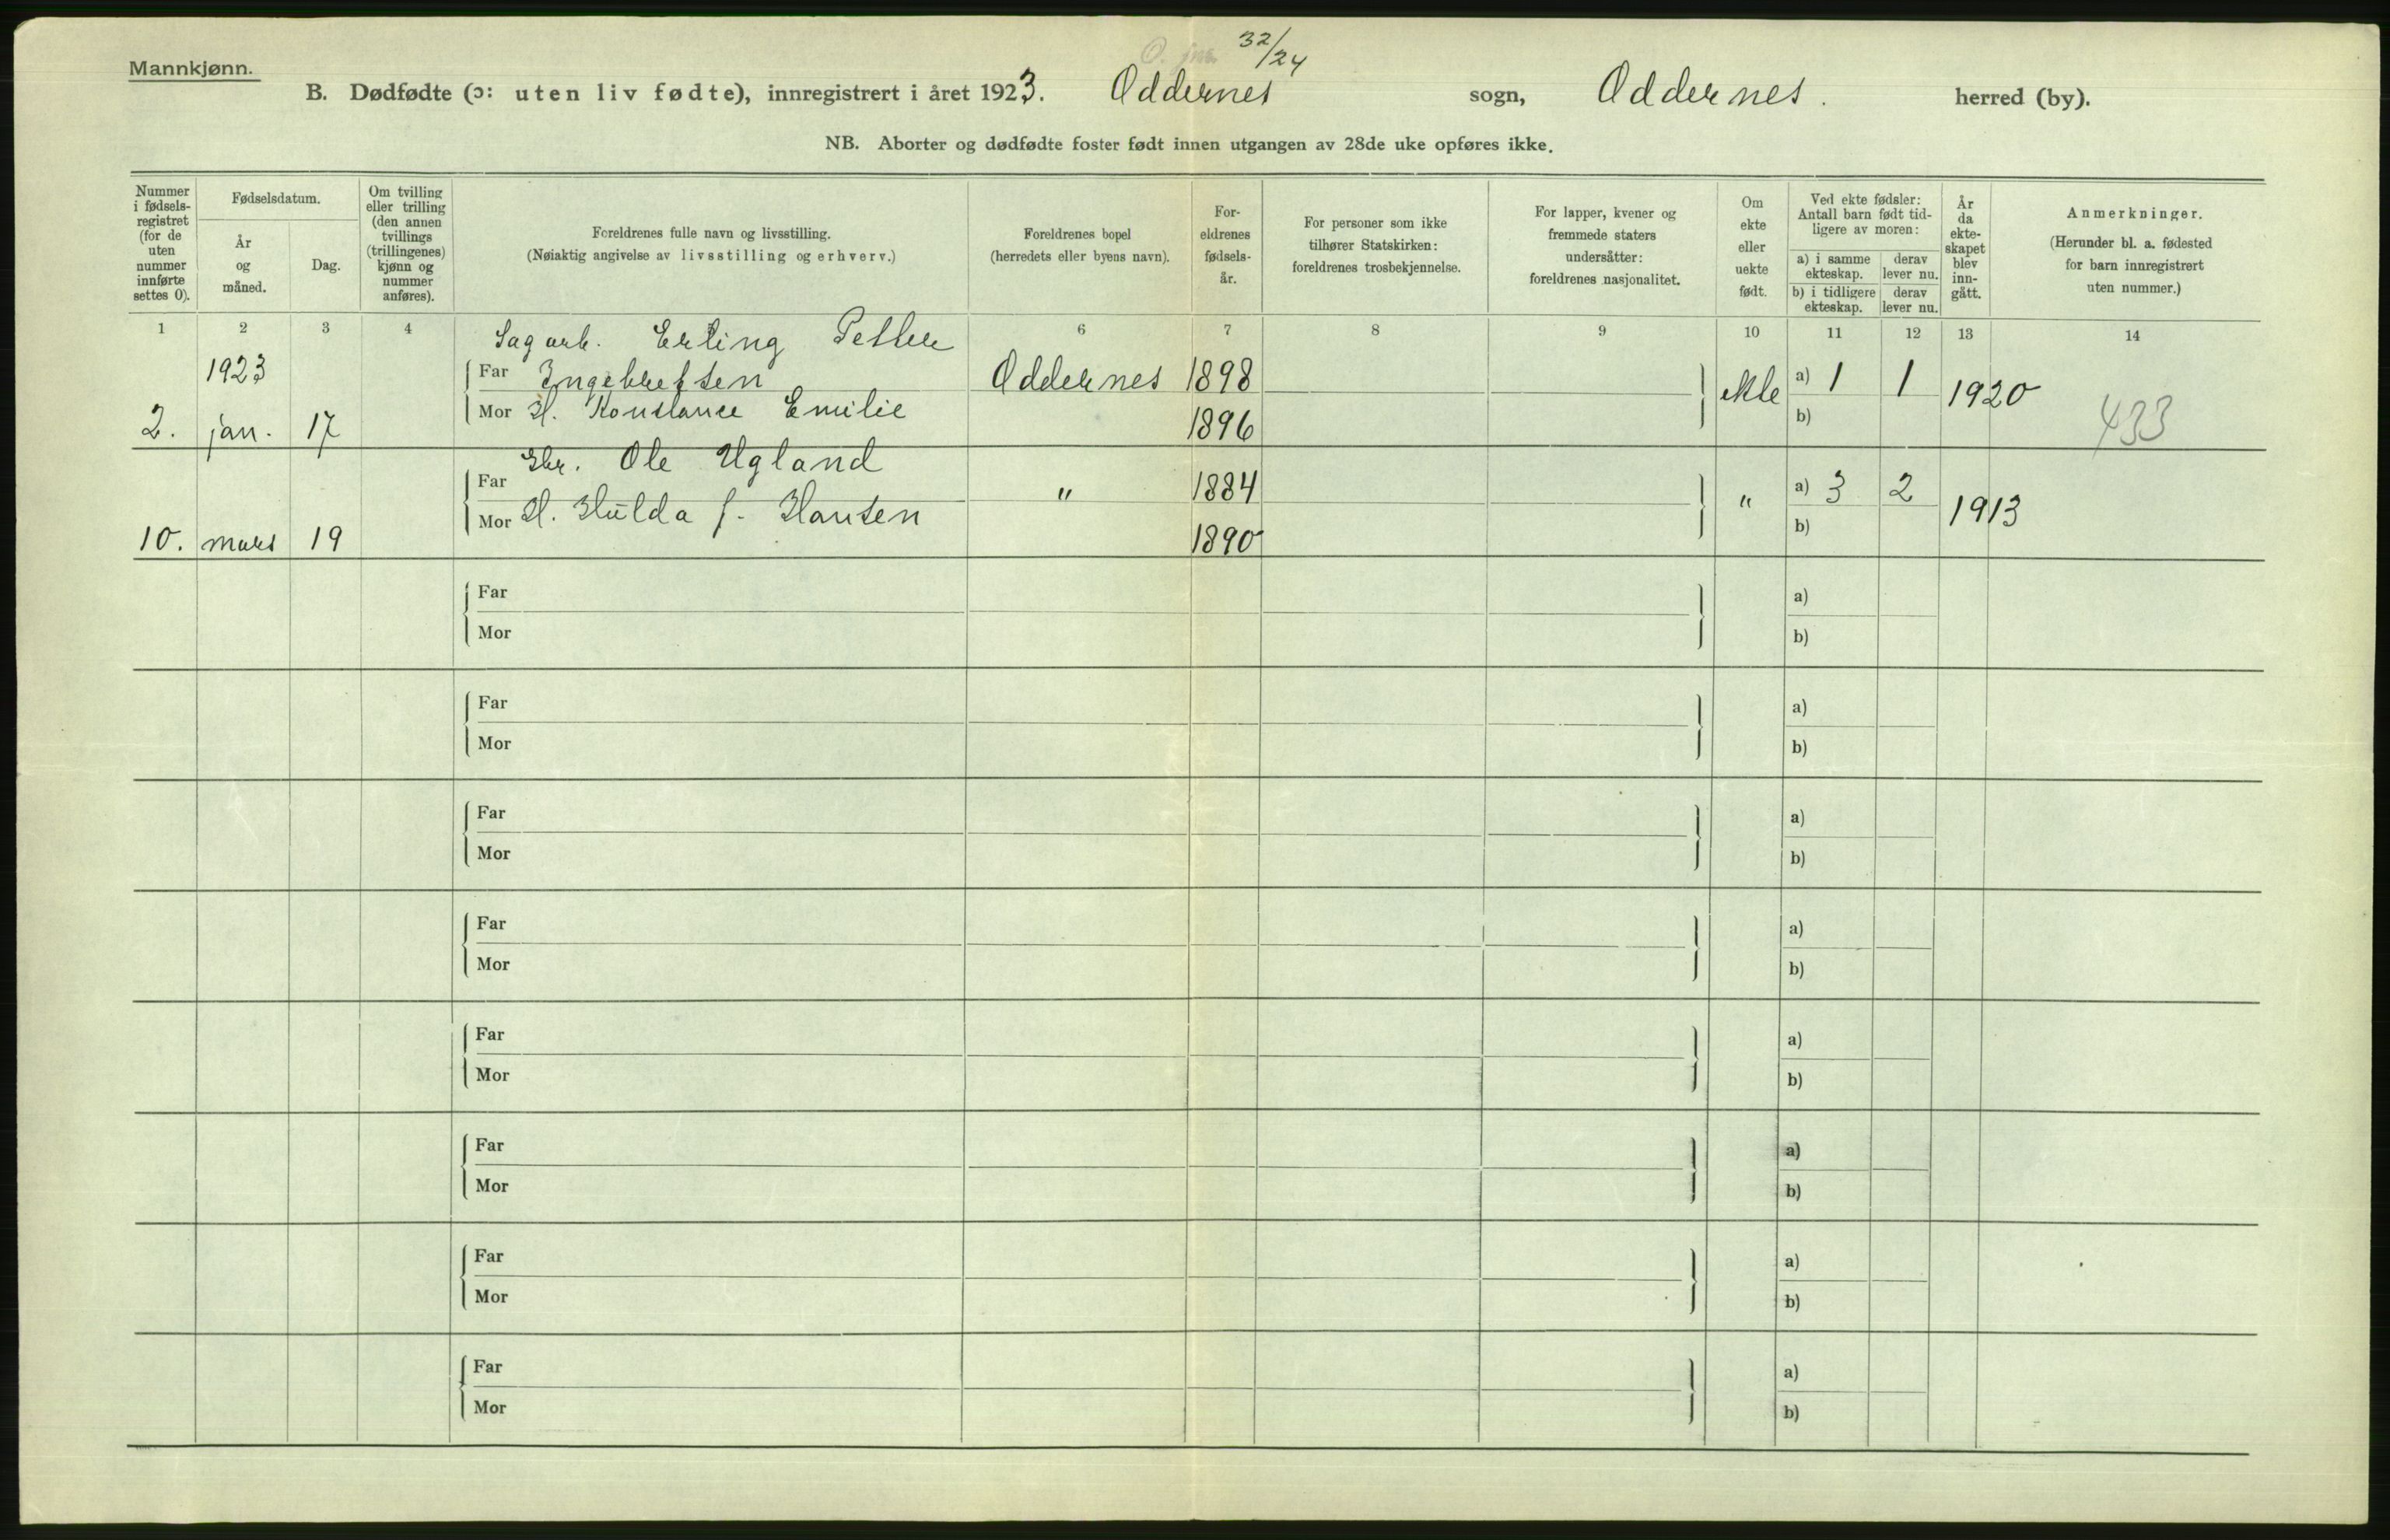 32/24
Mannkjønn.
B. Dødfødte (ɔ: uten liv fødte), innregistrert i året 1923. Oddernes sogn, Oddernes. herred (by).
NB. Aborter og dødfødte foster født innen utgangen av 28de uke opføres ikke.
Nummer i fødsels- registret (for de uten nummer innførte settes 0).
Fødselsdatum.
År og måned.
Dag.
Om tvilling eller trilling (den annen tvillings (trillingenes) kjønn og nummer anføres).
Foreldrenes fulle navn og livsstilling.
(Nøiaktig angivelse av livsstilling og erhverv.)
Foreldrenes bopel
(herredets eller byens navn).
For- eldrenes fødsels- år.
For personer som ikke tilhører Statskirken: foreldrenes trosbekjennelse.
For lapper, kvener og fremmede staters undersåtter: foreldrenes nasjonalitet.
Om ekte eller uekte født.
Ved ekte fødsler: Antall barn født tid- ligere av moren:
a) i samme ekteskap.
derav lever nu.
b) i tidligere ekteskap.
derav lever nu.
År da ekte- skapet blev inn- gått.
Anmerkninger.
(Herunder bl. a. fødested for barn innregistrert uten nummer.)
1 2 3 4 6 7 8 9 10 11 12 13 14
Sagarb. Erling Petter
1923 Far Engebretsen Oddernes 1898 ekte a) 1 1 1920
2. jan. 17 Mor H. Konstance Emilie 1896 b) 433
Ole Ugland
Far " 1884 " a) 3 2 1913
10. mars 19 Mor H. Hulda f. Hansen 1890 b)
Far a)
Mor b)
Far a)
Mor b)
Far a)
Mor b)
Far a)
Mor b)
Far a)
Mor b)
Far a)
Mor b)
Far a)
Mor b)
Far a)
Mor b)